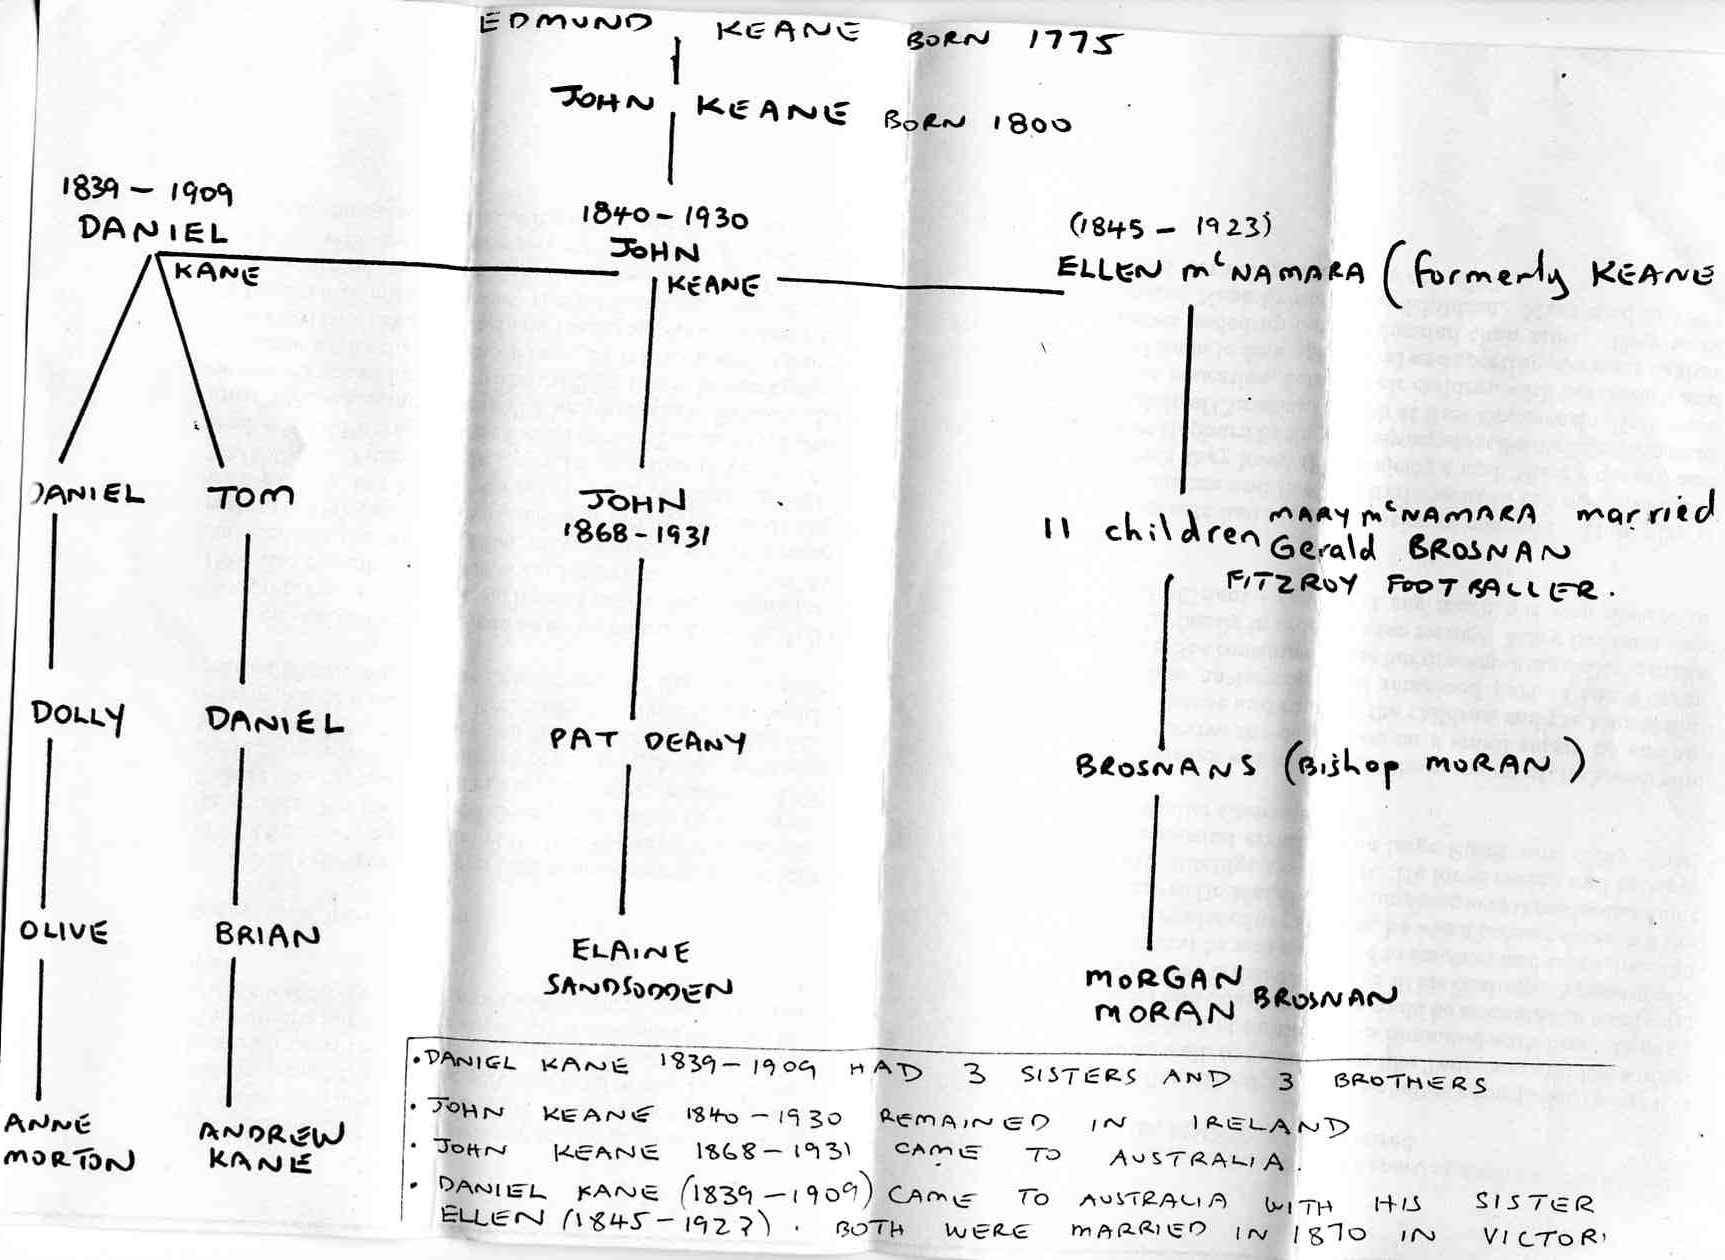 EDMUND KEANE BORN 1775
JOHN KEANE BORN 1800
1839 - 1909
DANIEL
KANE
1840 - 1930
JOHN
KEANE
(1845 - 1923)
ELLEN McNAMARA (formerly KEANE
DANIEL
TOM
JOHN
1868 - 1931
11 children MARY McNAMARA married
Gerald BROSNAN
FITZROY FOOTBALLER.
DOLLY
DANIEL
PAT DEANY
BROSNANS (Bishop MORAN)
OLIVE
BRIAN
ELAINE
MORGAN
MORAN BROSNAN
ANNE
MORTON
ANDREW
KANE
• DANIEL KANE 1839 - 1909 HAD 3 SISTERS AND 3 BROTHERS
• JOHN KEANE 1840 - 1930 REMAINED IN IRELAND
• JOHN KEANE 1868 - 1931 CAME TO AUSTRALIA.
• DANIEL KANE (1839 - 1909) CAME TO AUSTRALIA WITH HIS SISTER
ELLEN (1845 - 192?). BOTH WERE MARRIED IN 1870 IN VICTORI